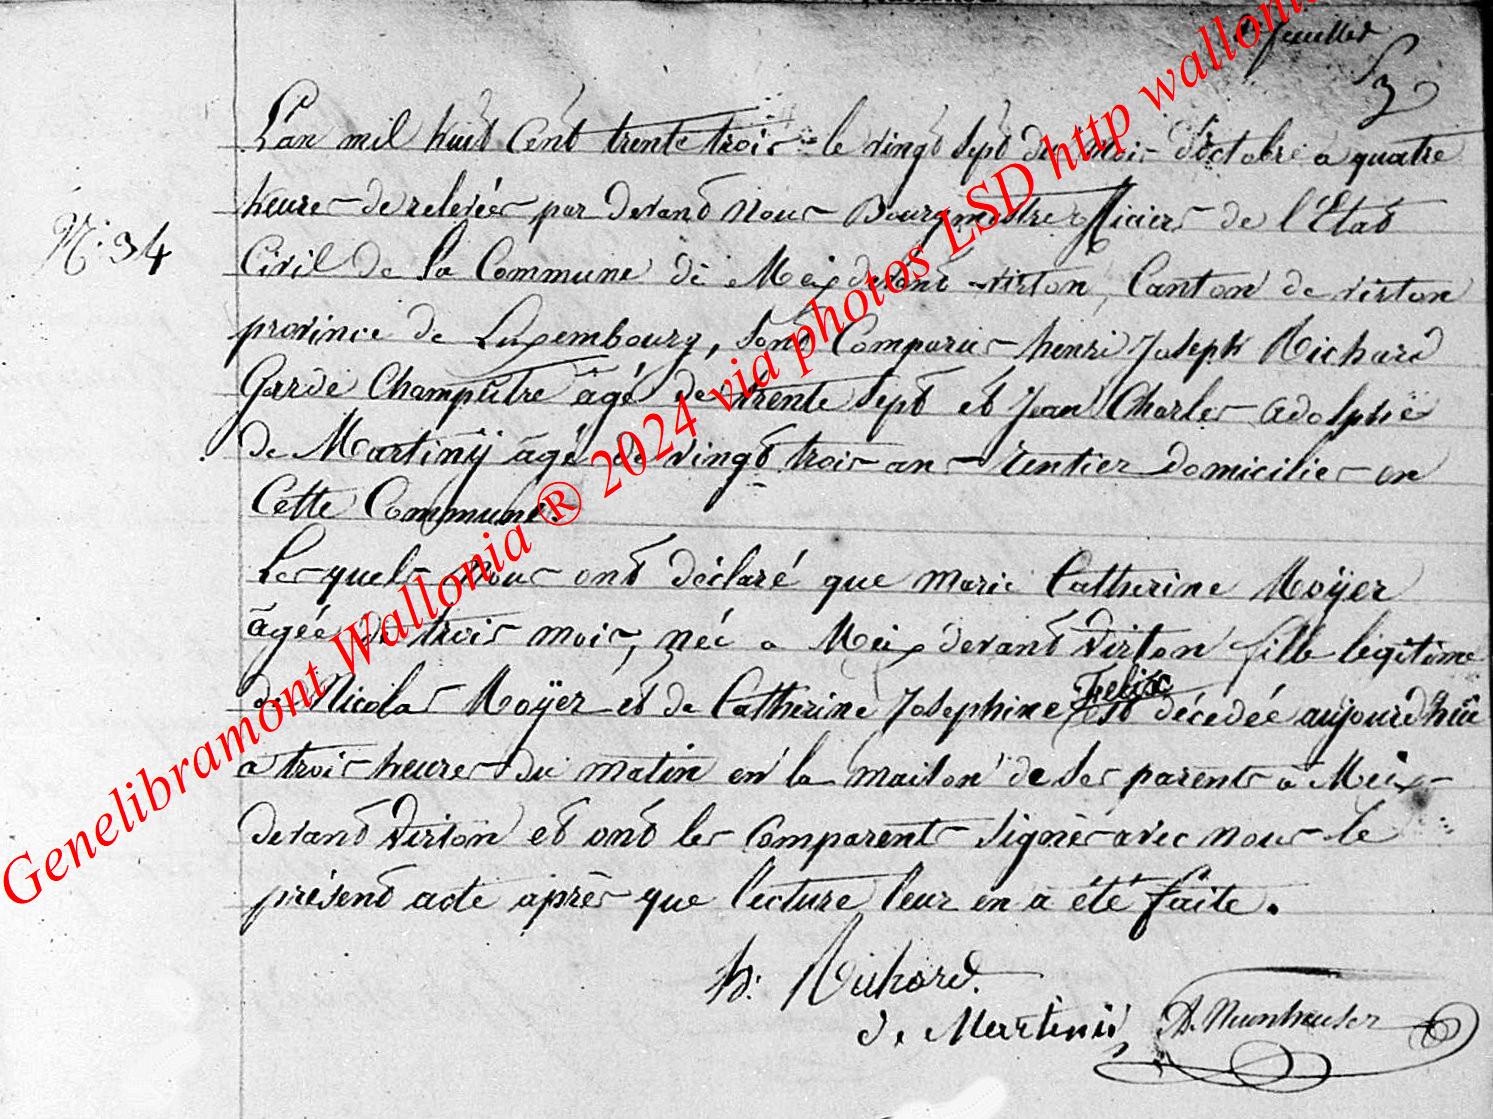 feuillet
L'an mil huit Cent trente trois le vingt sept du mois d'octobre a quatre
heures de relevées par devant nous Bourgmestre officier de l'Etat
N: 34
Civil de la Commune de Meix devant virton, Canton de virton
province de Luxembourg, sont Comparus henri Joseph Richard
Garde Champêtre âgé de trente sept et Jean Charles adolphe
de Martiny âgé de vingt trois ans rentier domiciliés en
Cette Commune.
Lesquels nous ont déclaré que marie Catherine Moÿer
âgée de trois mois, née a Meix devant Virton fille légitime
de Nicolas Moÿer et de Catherine Josephine Felix est décedée aujourd'hui
a trois heures du matin en la maison de ses parents à Meix
devant Virton et ont les Comparents signés avec nous le
présent acte après que lecture leur en a été faite.
h: Richard.
de Martini
Genelibramont Wallonia ® 2024 via photos LSD http wallonia